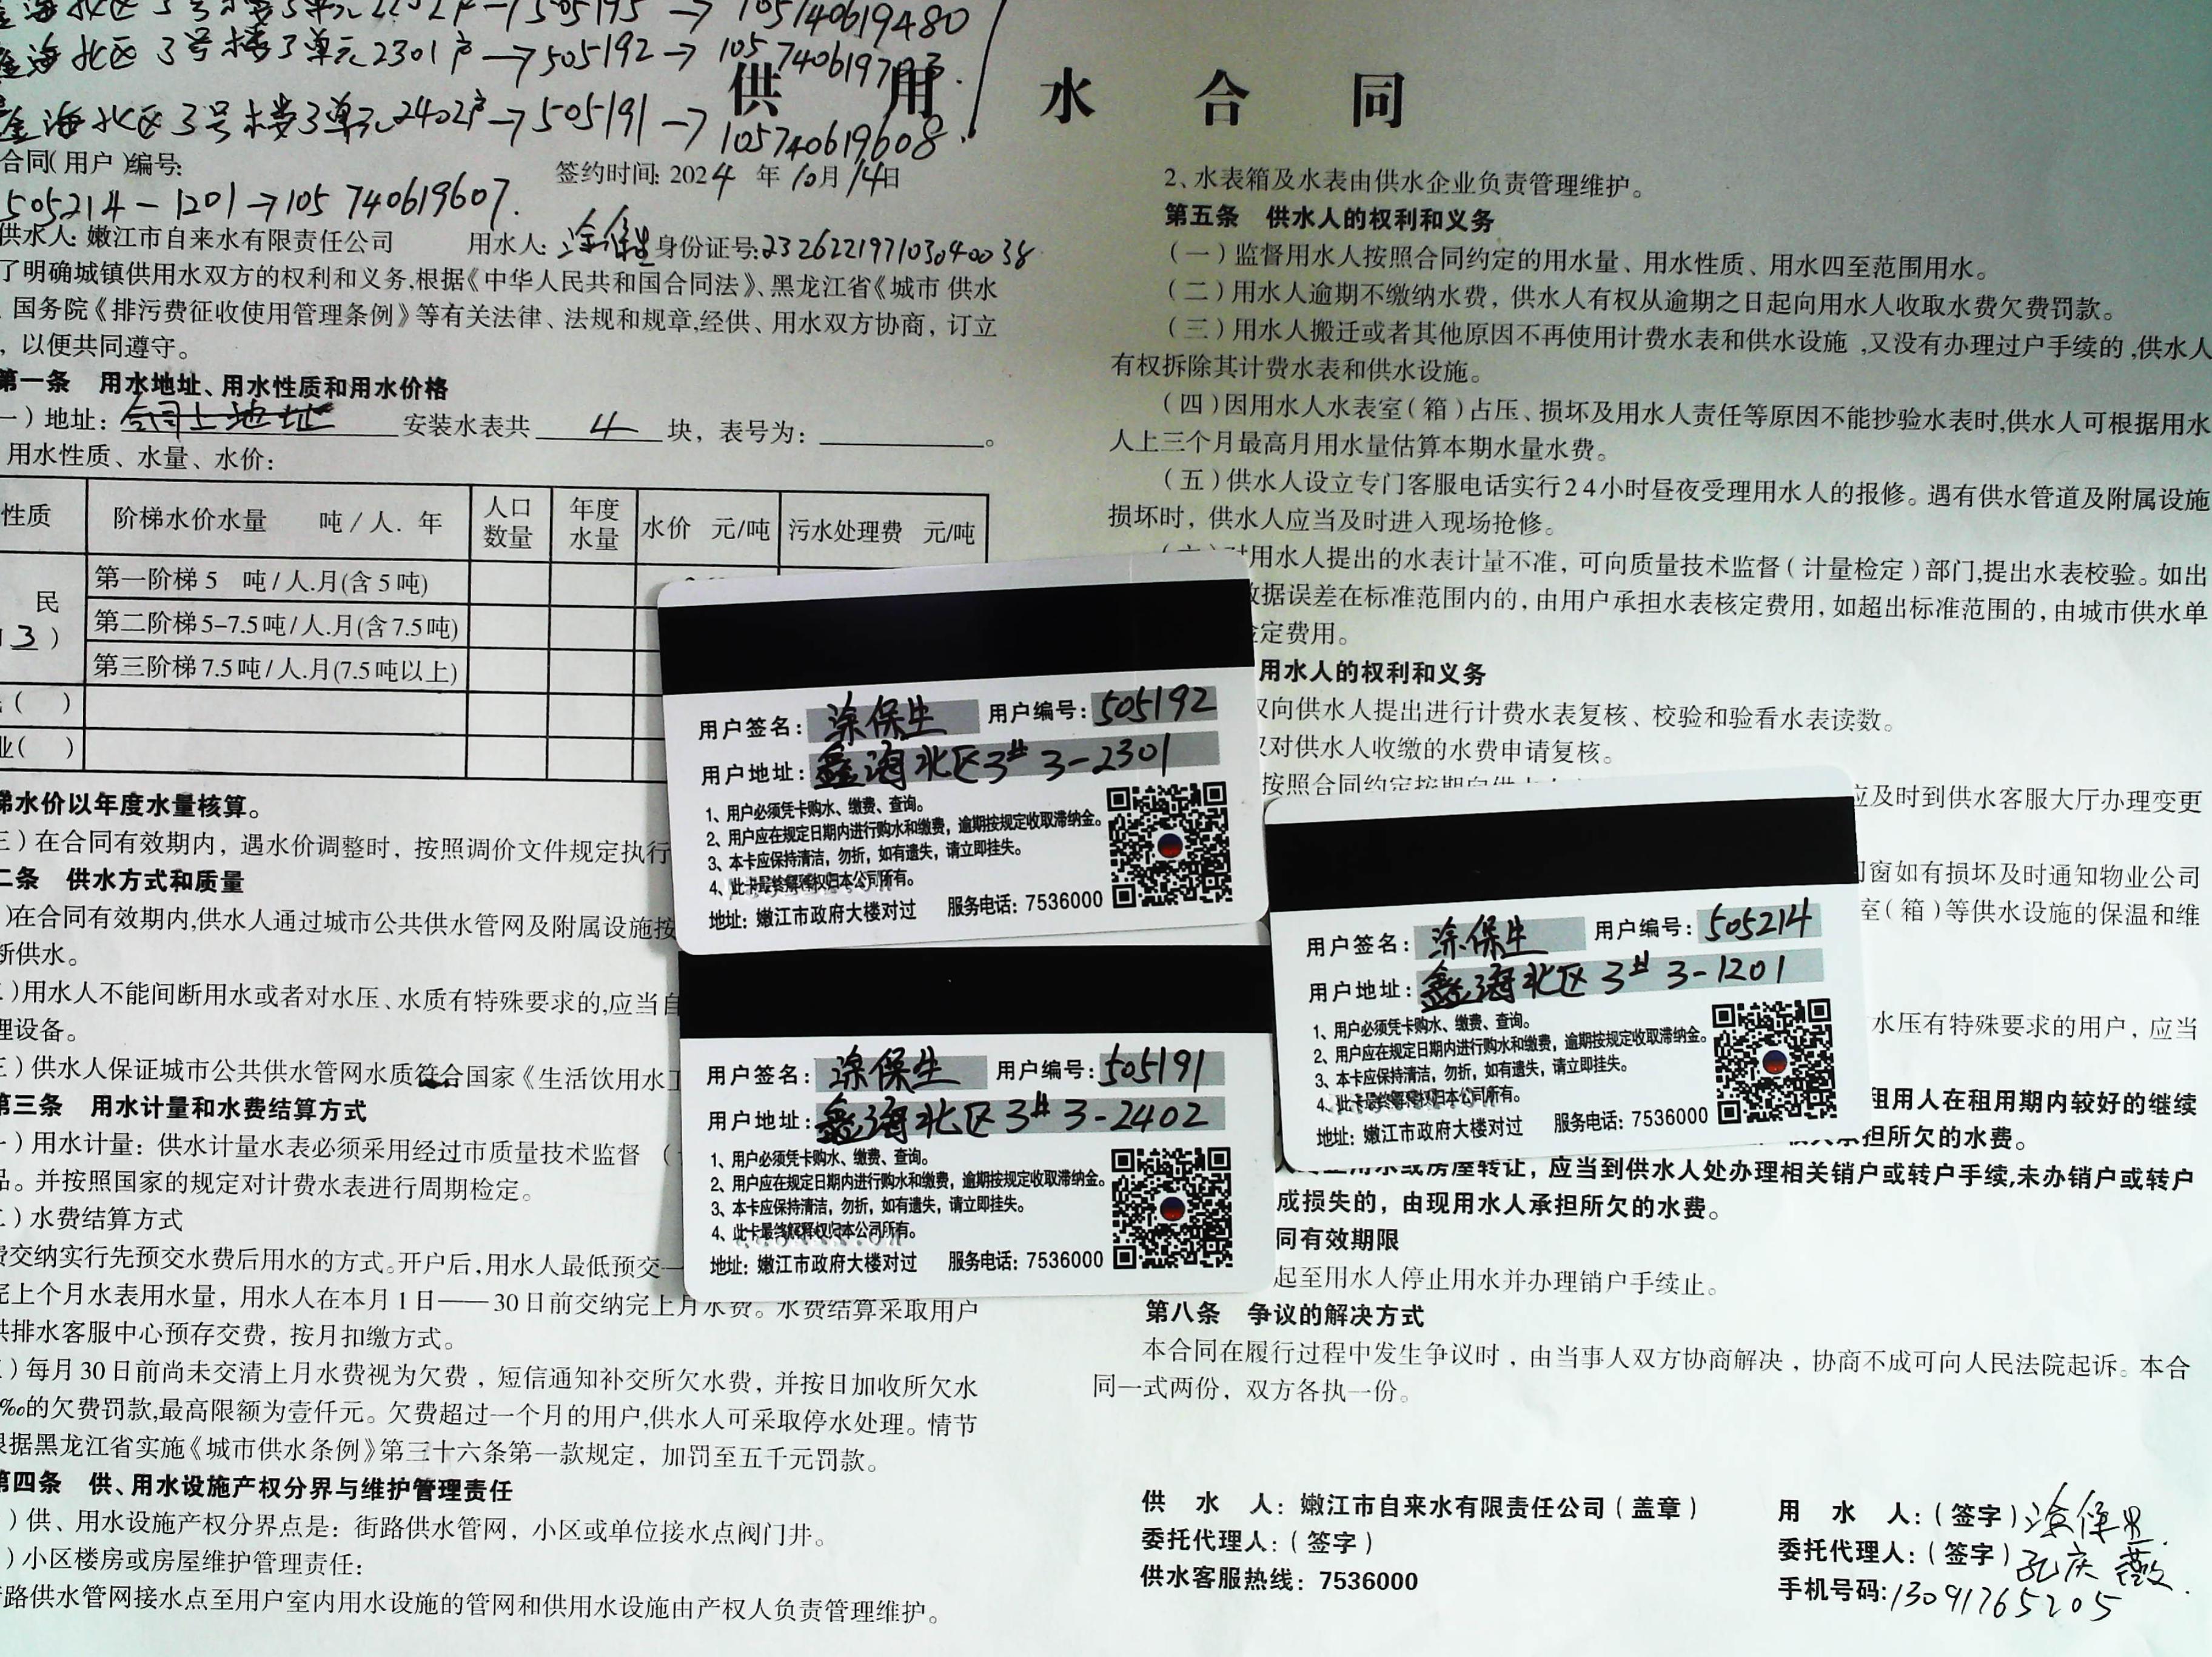 海北区3号楼3单元2202户→505195→105740619480
鑫海北区3号楼3单元2301户→505192→105740619703.
鑫海北区3号楼3单元2402户→505191→105740619608.
供用水合同
合同(用户)编号:
签约时间: 2024年10月14日
505214-1201→105740619607.
供水人: 嫩江市自来水有限责任公司 用水人: 涂保生 身份证号:232622197103040038
了明确城镇供用水双方的权利和义务,根据《中华人民共和国合同法》、黑龙江省《城市 供水
国务院《排污费征收使用管理条例》等有关法律、法规和规章,经供、用水双方协商，订立
，以便共同遵守。
第一条 用水地址、用水性质和用水价格
一）地址：合同上地址 安装水表共 4 块，表号为：。
用水性质、水量、水价：
性质 阶梯水价水量 吨/人．年 人口数量 年度水量 水价 元/吨 污水处理费 元/吨
民
3 ）
第一阶梯 5 吨/人.月(含5吨)
第二阶梯 5-7.5吨/人.月(含7.5吨)
第三阶梯 7.5吨/人.月(7.5吨以上)
( )
业( )
梯水价以年度水量核算。
三）在合同有效期内，遇水价调整时，按照调价文件规定执行
二条 供水方式和质量
)在合同有效期内,供水人通过城市公共供水管网及附属设施按
断供水。
)用水人不能间断用水或者对水压、水质有特殊要求的,应当自
理设备。
三）供水人保证城市公共供水管网水质符合国家《生活饮用水卫
第三条 用水计量和水费结算方式
一）用水计量：供水计量水表必须采用经过市质量技术监督（
品。并按照国家的规定对计费水表进行周期检定。
二）水费结算方式
费交纳实行先预交水费后用水的方式。开户后,用水人最低预交一
完上个月水表用水量，用水人在本月1日——30日前交纳完上月水费。水费结算采取用户
供排水客服中心预存交费，按月扣缴方式。
)每月30日前尚未交清上月水费视为欠费，短信通知补交所欠水费，并按日加收所欠水
‰的欠费罚款,最高限额为壹仟元。欠费超过一个月的用户,供水人可采取停水处理。情节
根据黑龙江省实施《城市供水条例》第三十六条第一款规定，加罚至五千元罚款。
第四条 供、用水设施产权分界与维护管理责任
）供、用水设施产权分界点是：街路供水管网，小区或单位接水点阀门井。
）小区楼房或房屋维护管理责任：
路供水管网接水点至用户室内用水设施的管网和供用水设施由产权人负责管理维护。
2、水表箱及水表由供水企业负责管理维护。
第五条 供水人的权利和义务
（一）监督用水人按照合同约定的用水量、用水性质、用水四至范围用水。
（二）用水人逾期不缴纳水费，供水人有权从逾期之日起向用水人收取水费欠费罚款。
（三）用水人搬迁或者其他原因不再使用计费水表和供水设施,又没有办理过户手续的,供水人
有权拆除其计费水表和供水设施。
（四）因用水人水表室（箱）占压、损坏及用水人责任等原因不能抄验水表时,供水人可根据用水
人上三个月最高月用水量估算本期水量水费。
（五）供水人设立专门客服电话实行24小时昼夜受理用水人的报修。遇有供水管道及附属设施
损坏时，供水人应当及时进入现场抢修。
对用水人提出的水表计量不准，可向质量技术监督（计量检定）部门,提出水表校验。如出
数据误差在标准范围内的，由用户承担水表核定费用，如超出标准范围的，由城市供水单
定费用。
用水人的权利和义务
权向供水人提出进行计费水表复核、校验和验看水表读数。
权对供水人收缴的水费申请复核。
按照合同约定按期向供水人
应及时到供水客服大厅办理变更
门窗如有损坏及时通知物业公司
室（箱）等供水设施的保温和维
水压有特殊要求的用户，应当
租用人在租用期内较好的继续
承担所欠的水费。
用水或房屋转让，应当到供水人处办理相关销户或转户手续,未办销户或转户
成损失的，由现用水人承担所欠的水费。
同有效期限
起至用水人停止用水并办理销户手续止。
第八条 争议的解决方式
本合同在履行过程中发生争议时，由当事人双方协商解决，协商不成可向人民法院起诉。本合
同一式两份，双方各执一份。
供 水 人：嫩江市自来水有限责任公司（盖章）
委托代理人：（签字）
供水客服热线：7536000
用 水 人：（签字）涂保生.
委托代理人：（签字）孔庆薇.
手机号码:13091765205
用户签名：涂保生 用户编号：505192
用户地址：鑫海北区3# 3-2301
1、用户必须凭卡购水、缴费、查询。
2、用户应在规定日期内进行购水和缴费，逾期按规定收取滞纳金。
3、本卡应保持清洁，勿折，如有遗失，请立即挂失。
4、此卡最终解释权归本公司所有。
地址：嫩江市政府大楼对过 服务电话：7536000
用户签名：涂保生 用户编号：505214
用户地址：鑫海北区3# 3-1201
1、用户必须凭卡购水、缴费、查询。
2、用户应在规定日期内进行购水和缴费，逾期按规定收取滞纳金。
3、本卡应保持清洁，勿折，如有遗失，请立即挂失。
4、此卡最终解释权归本公司所有。
地址：嫩江市政府大楼对过 服务电话：7536000
用户签名：涂保生 用户编号：505191
用户地址：鑫海北区3# 3-2402
1、用户必须凭卡购水、缴费、查询。
2、用户应在规定日期内进行购水和缴费，逾期按规定收取滞纳金。
3、本卡应保持清洁，勿折，如有遗失，请立即挂失。
4、此卡最终解释权归本公司所有。
地址：嫩江市政府大楼对过 服务电话：7536000